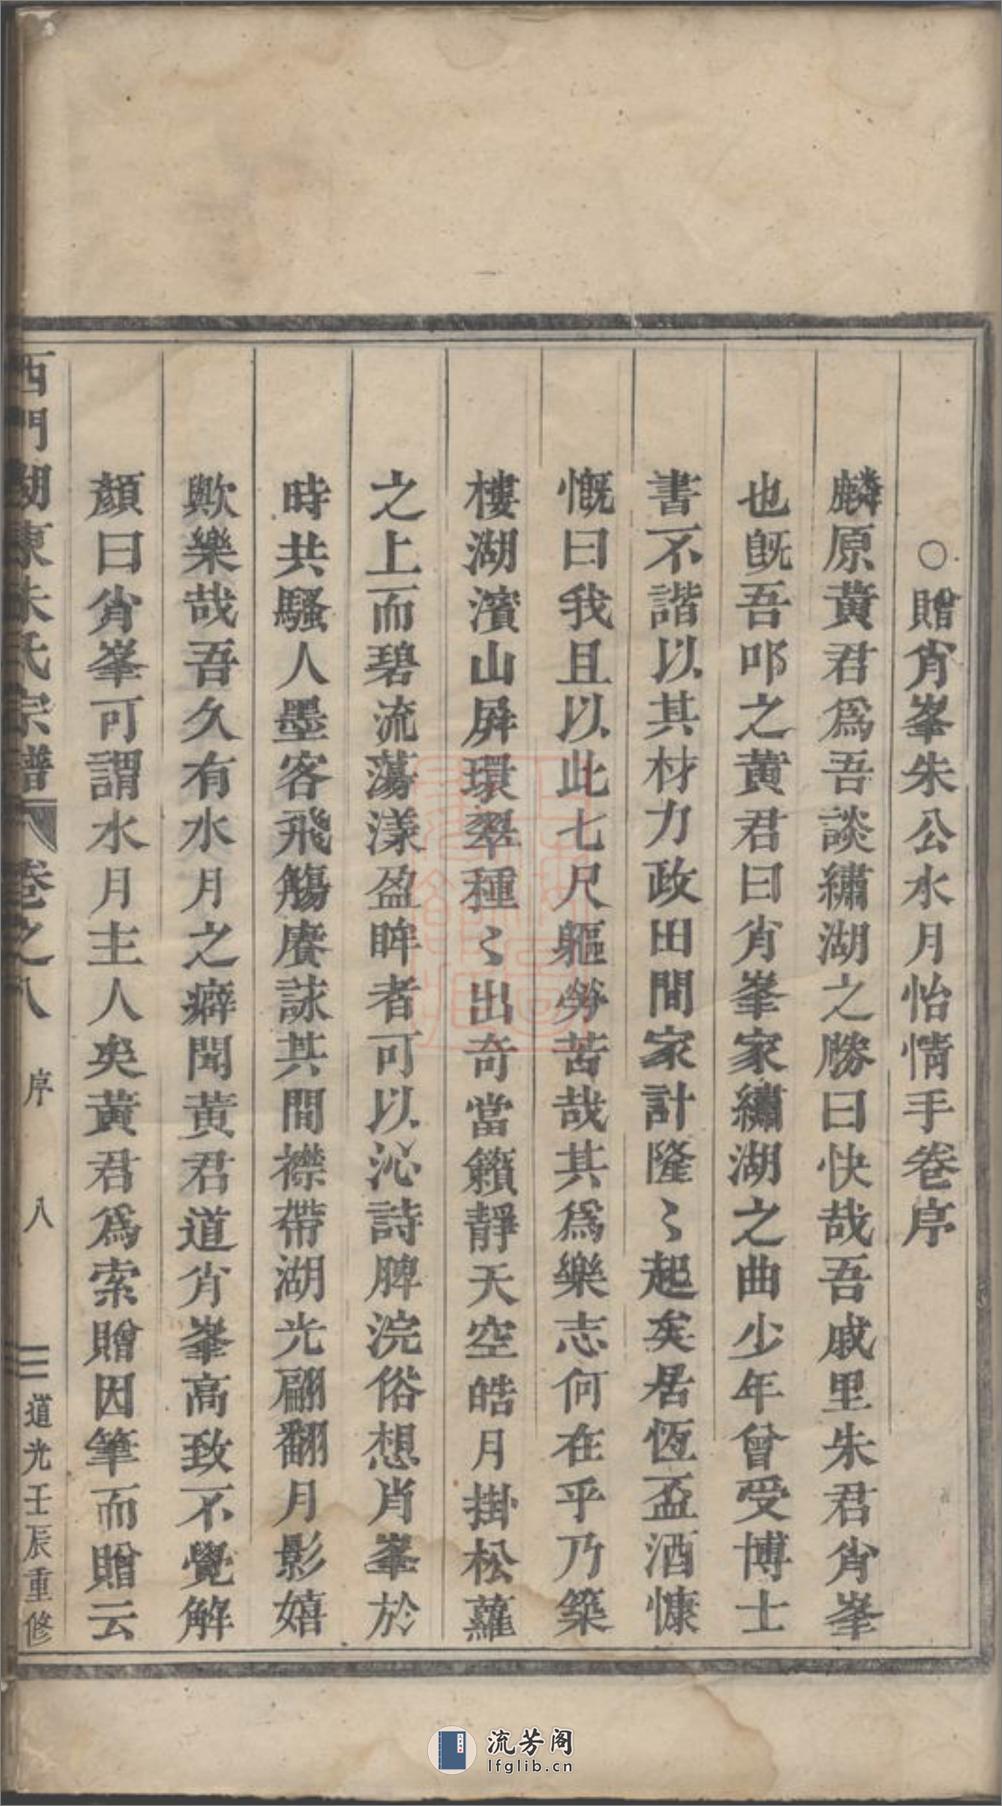 ○贈肖峯朱公水月怡情手卷序
麟原黃君爲吾談繡湖之勝曰快哉吾戚里朱君肖峯
也旣吾叩之黃君曰肖峯家繡湖之曲少年曾受博士
書不諧以其材力政田間家計隆〻起矣居恆盃酒慷
慨曰我且以此七尺軀勞苦哉其爲樂志何在乎乃築
樓湖濱山屏環翠種〻出奇當籟靜天空皓月掛松蘿
之上而碧流蕩漾盈眸者可以沁詩脾浣俗想肖峯於
時共騷人墨客飛觴賡詠其間襟帶湖光翩翻月影嬉
歟樂哉吾久有水月之癖聞黃君道肖峯高致不覺解
顏曰肖峯可謂水月主人矣黃君爲索贈因筆而贈云
西門湖東朱氏宗譜 卷之八 序 八 道光壬辰重修
流芳阁
lfglib.cn